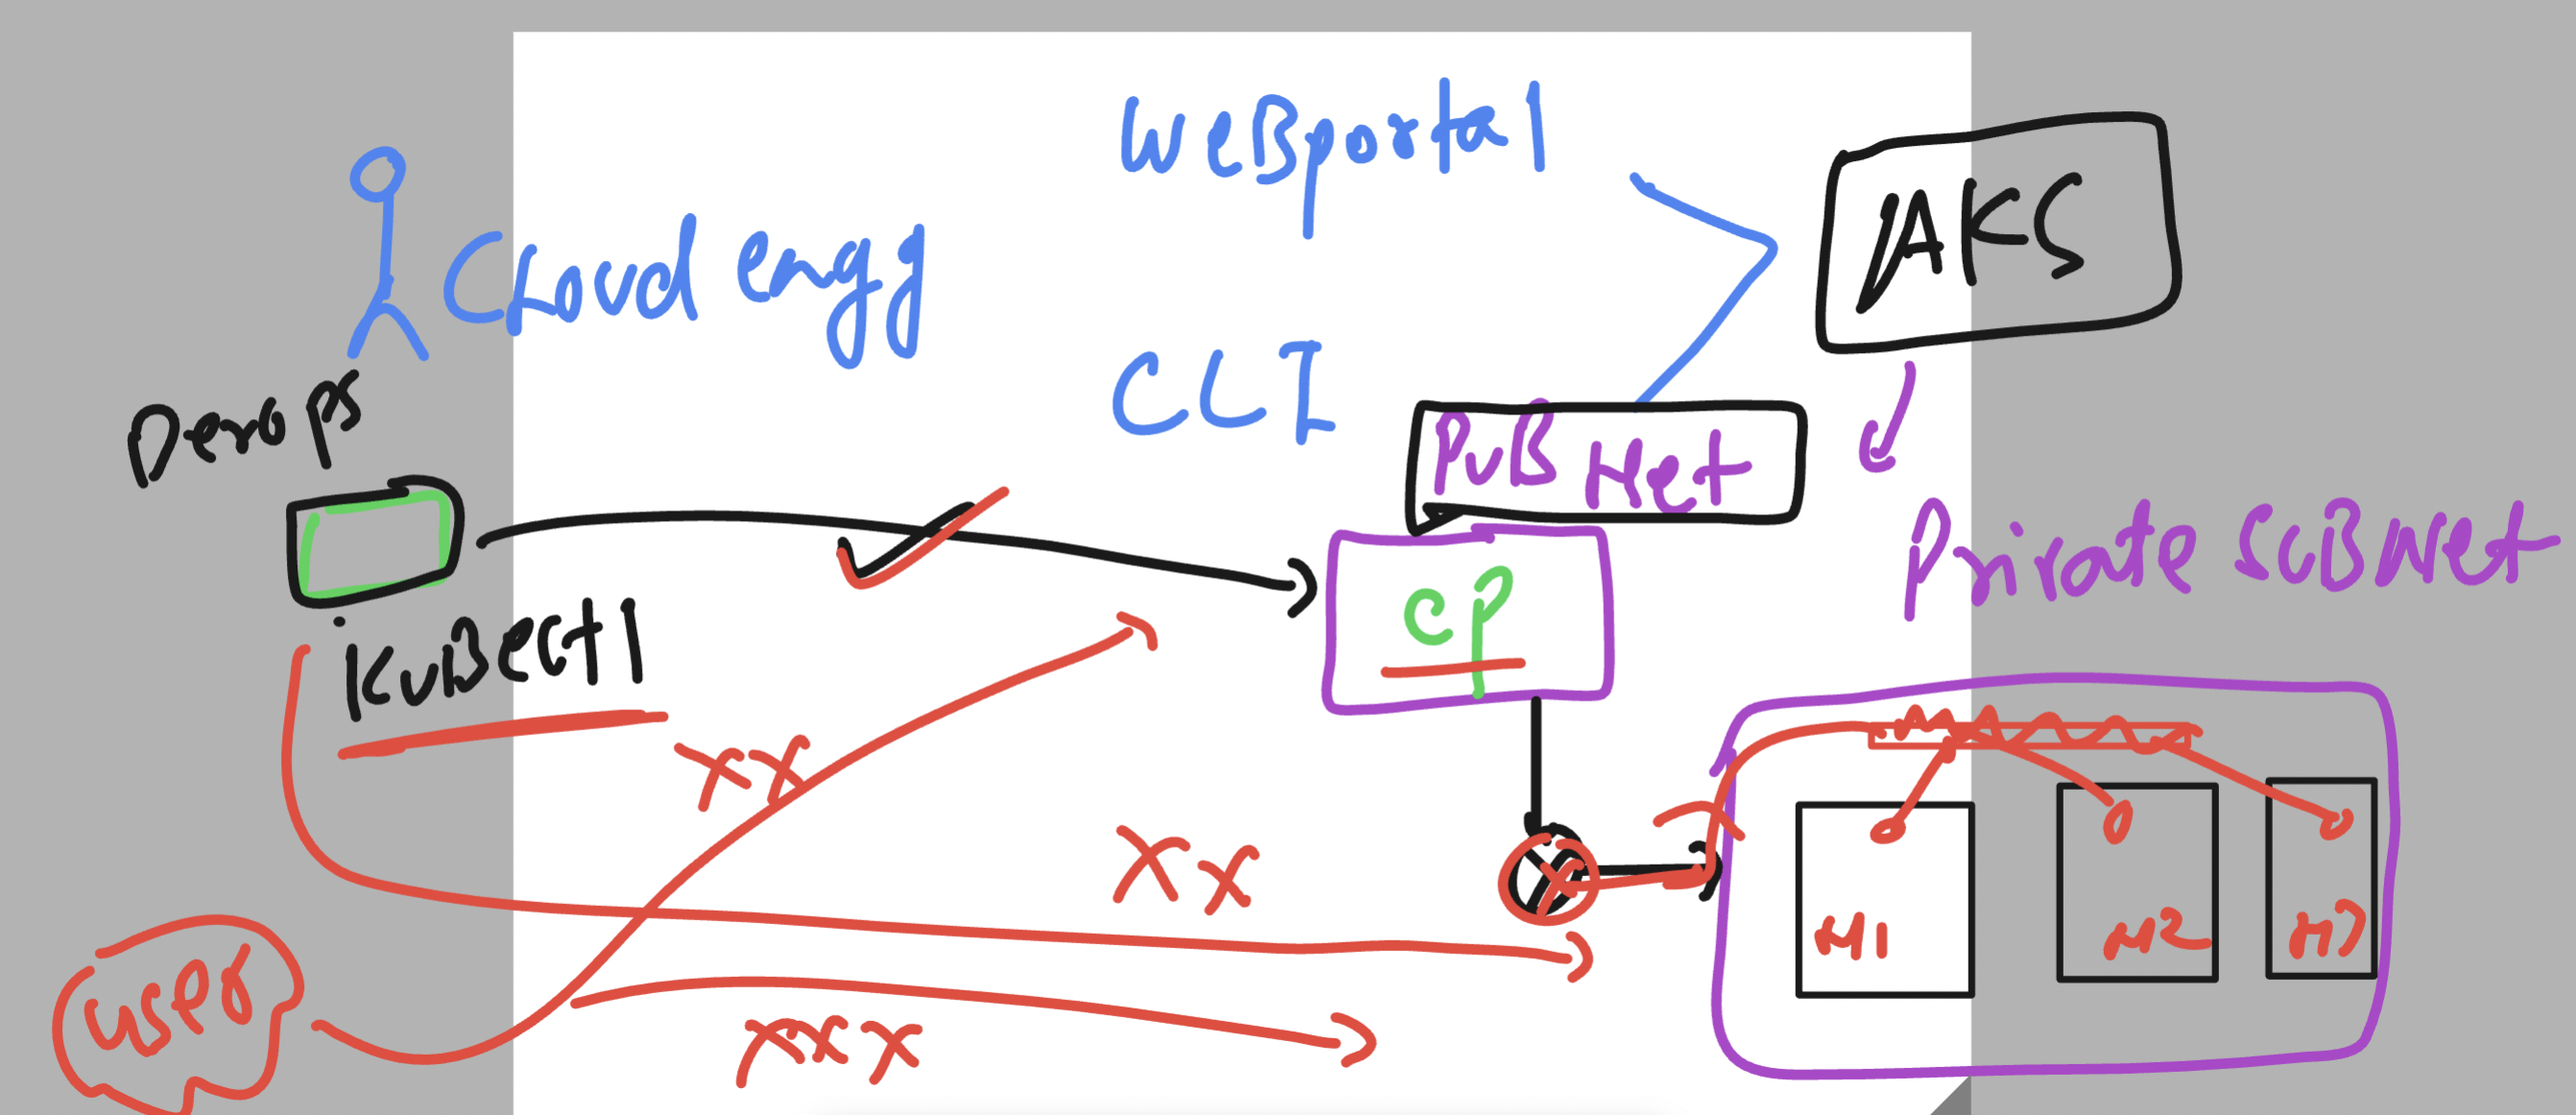 WeBportal
AKS
Cloud engg
CLI
Devops
PuB Net
Private SuBNet
CP
KuBectl
XX
XX
M1
M2
user
XXX